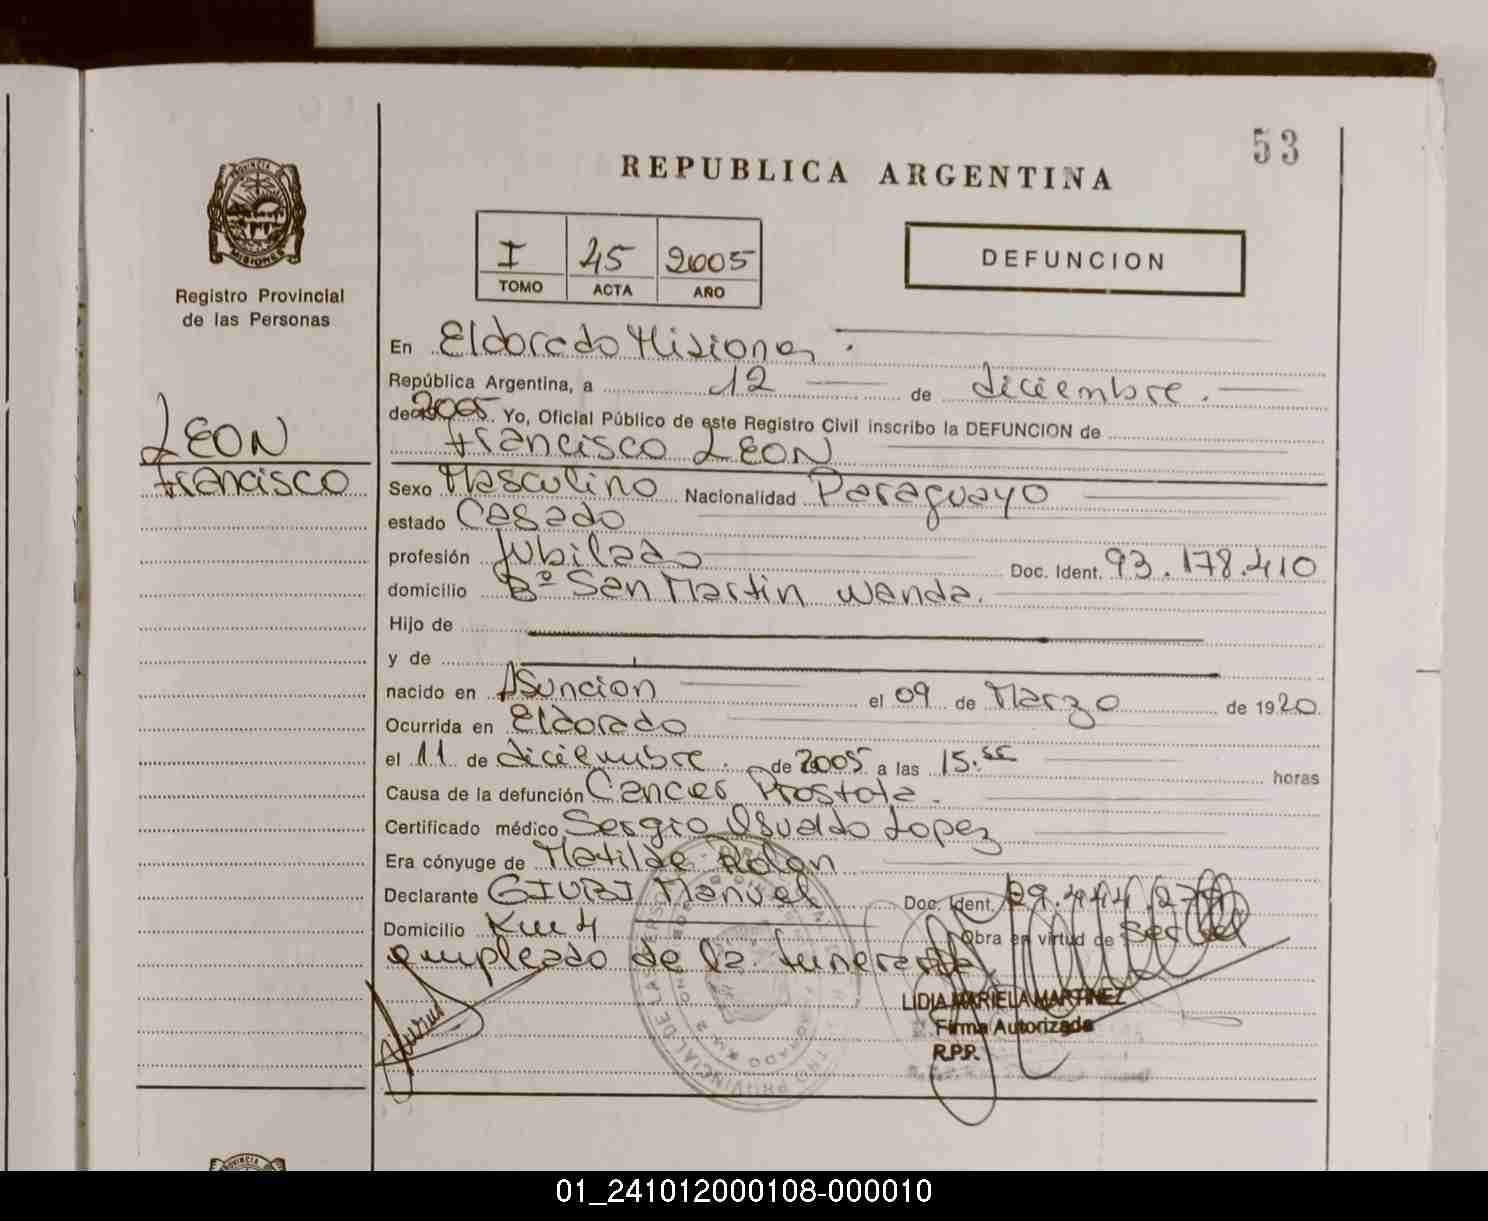 53
REPUBLICA ARGENTINA
PROVINCIA
MISIONES
Registro Provincial
de las Personas
I 45 2005
TOMO ACTA AÑO
DEFUNCION
LEON
Francisco
En Eldorado Misiones.
República Argentina, a 12 de diciembre.
de 2005. Yo, Oficial Público de este Registro Civil inscribo la DEFUNCION de
Francisco LEON
Sexo Masculino Nacionalidad Paraguayo
estado Casado
profesión Jubilado Doc. Ident. 93.178.410
domicilio Bº San Martin Wanda.
Hijo de
y de
nacido en Asuncion el 09 de Marzo de 1920
Ocurrida en Eldorado
el 11 de diciembre. de 2005 a las 15. horas
Causa de la defunción Cancer Prostata.
Certificado médico Sergio Osvaldo Lopez
Era cónyuge de Matilde Rolon
Declarante GIUBI Manuel Doc. Ident. 29.444.27
Domicilio Km 4 Obra en virtud de ser
empleado de la funeraria
LIDIA MARIELA MARTINEZ
Firma Autorizada
R.P.P.
PROVINCIA
01_241012000108-000010